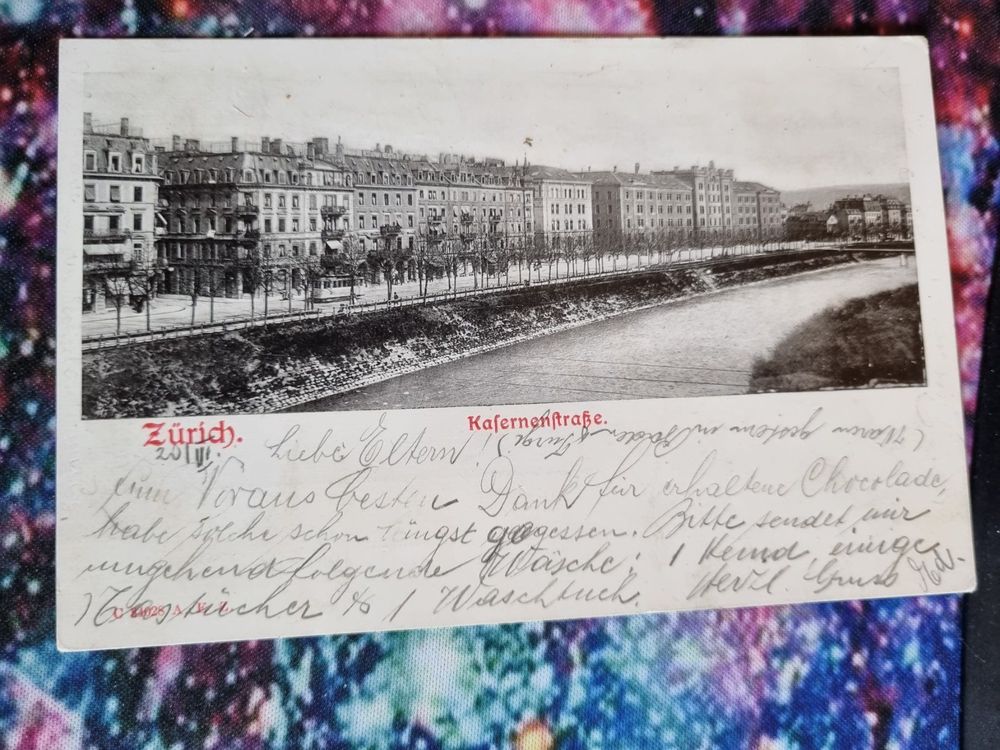 Zürich.
Kasernenstraße.
20/VI.
Liebe Eltern!
(Waren gestern in Baden & Turgi)
Zum Voraus besten Dank für erhaltene Chocolade,
habe solche schon längst gegessen. Bitte sendet mir
umgehend folgende Wäsche: 1 Hemd, einige
Nastücher & 1 Waschtuch. Herzl. Gruss